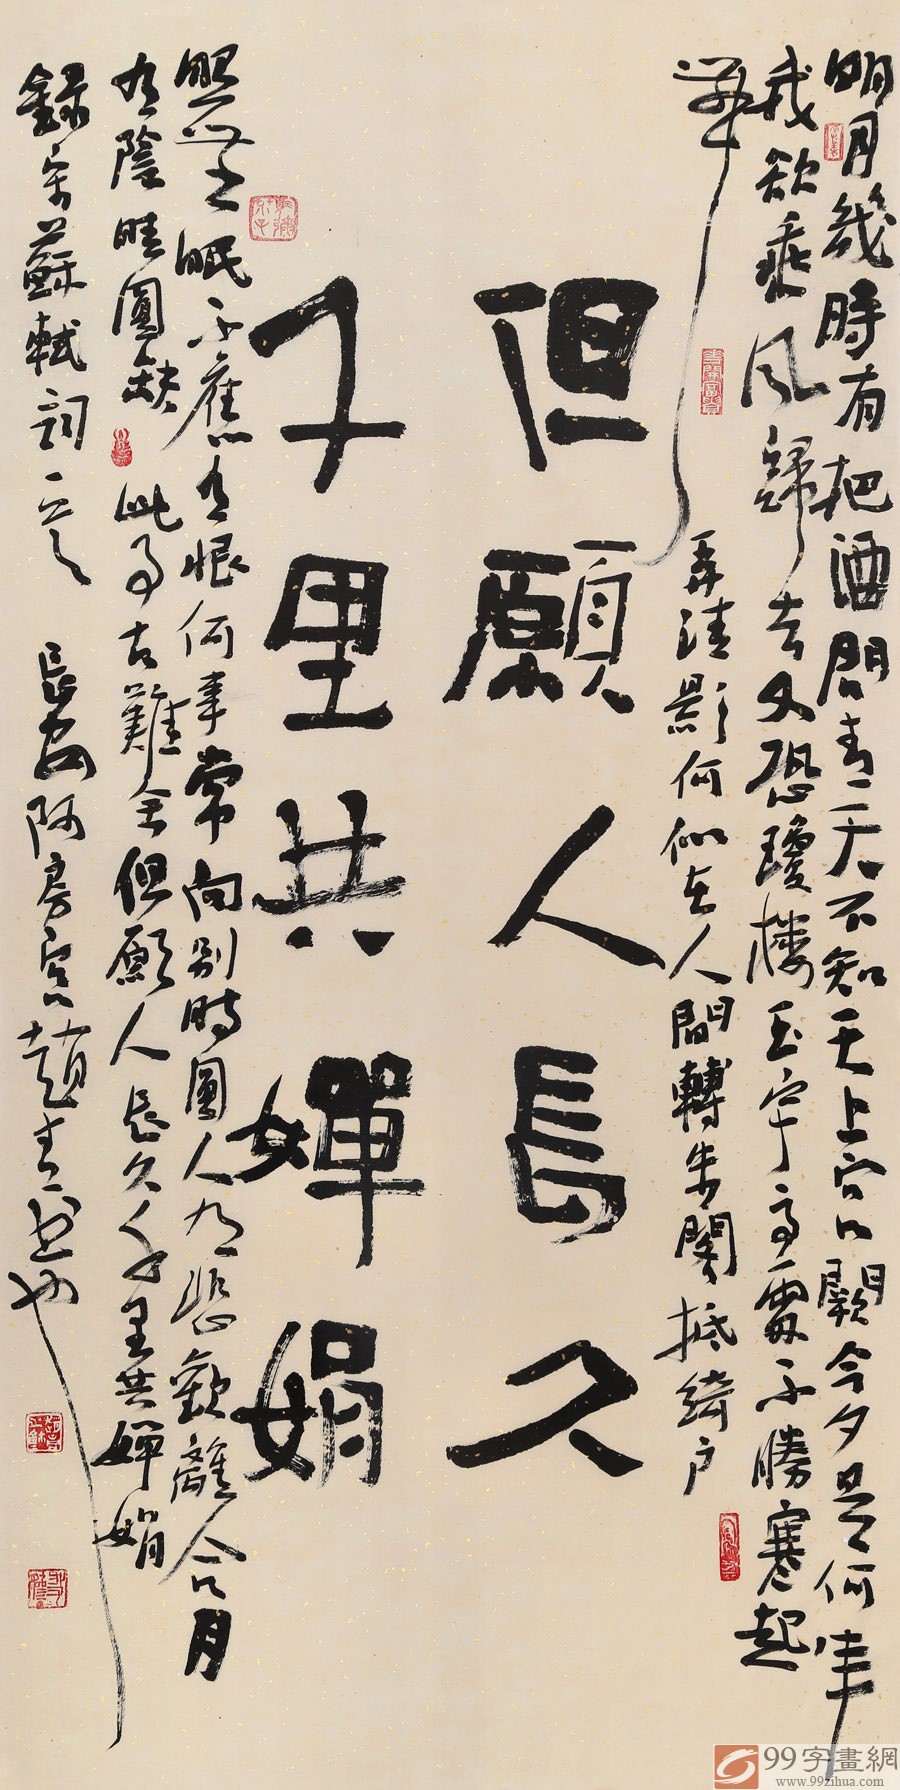 明月幾時有把酒問青天不知天上宮闕今夕是何年
我欲乘風歸去又恐瓊樓玉宇高處不勝寒起
舞弄清影何似在人間轉朱閣抵綺户
但願人長久
千里共嬋娟
照無眠不應有恨何事常向別時圓人有悲歡離合月
有陰晴圓缺此事古難全但願人長久千里共嬋娟
錄宋蘇軾詞一首 長安阿房宮趙青也
99字畫網
www.99zihua.com